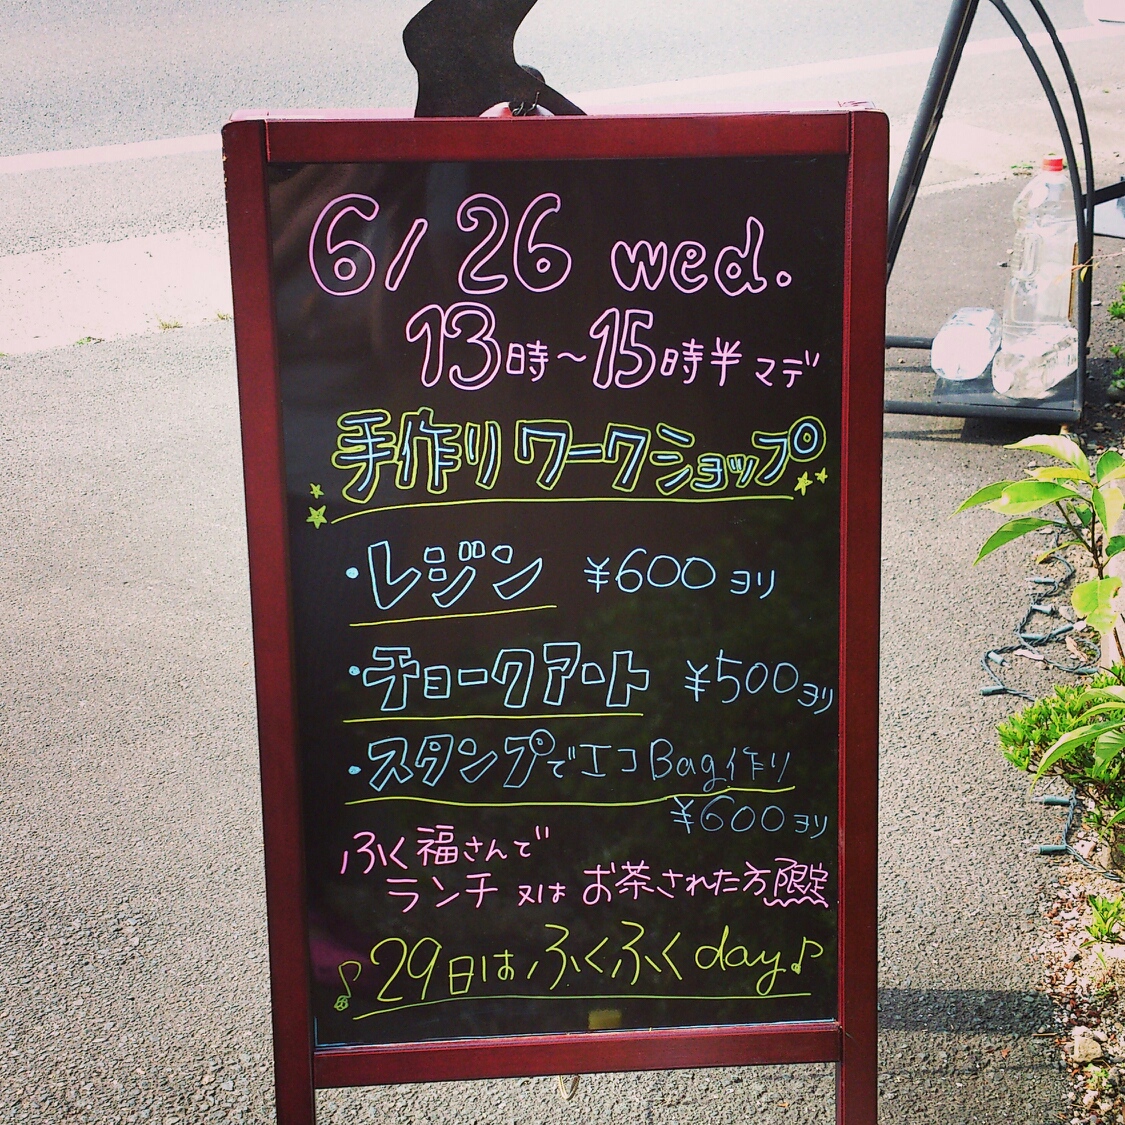 6/26 wed.
13時~15時半マデ
手作りワークショップ
・レジン ¥600ヨリ
・チョークアート ¥500ヨリ
・スタンプでエコBag作り
¥600ヨリ
ふく福さんで
ランチ又はお茶された方限定
♪29日はふくふくday♪